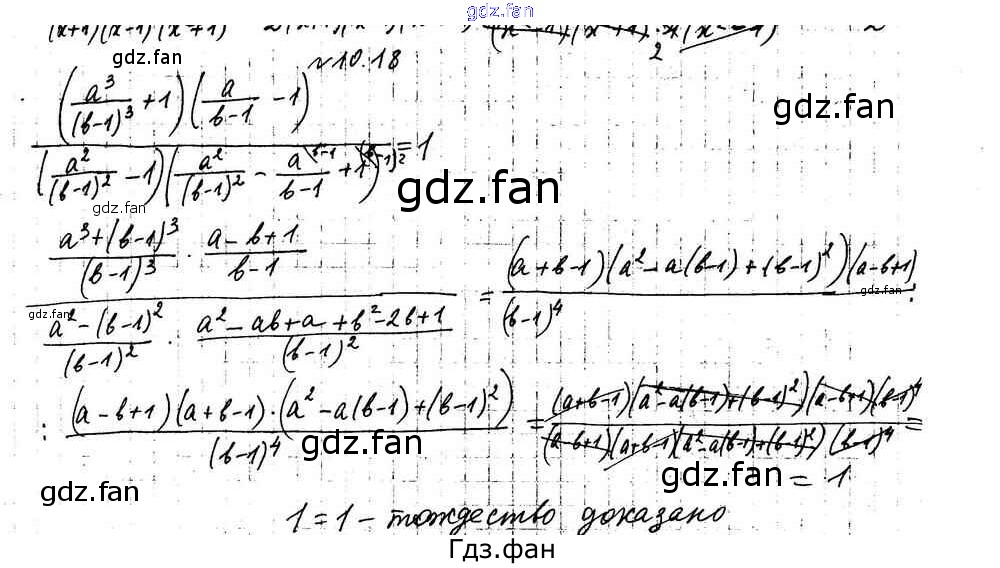 gdz.fan
(x+1)(x-1)(x²+1)
gdz.fan
№ 10.18
((a³/(b-1)³) + 1)(a/(b-1) - 1)
gdz.fan
((a²/(b-1)²) - 1)(a²/(b-1)² - a/(b-1) + 1) = 1
gdz.fan
gdz.fan
(a³+(b-1)³)/(b-1)³ · (a-b+1)/(b-1)
gdz.fan
(a²-(b-1)²)/(b-1)² · (a²-ab+a+b²-2b+1)/(b-1)² = (a+b-1)(a²-a(b-1)+(b-1)²)(a-b+1)/(b-1)⁴ :
: (a-b+1)(a+b-1)·(a²-a(b-1)+(b-1)²)/(b-1)⁴ = (a+b-1)(a²-a(b-1)+(b-1)²)(a-b+1)(b-1)⁴/(a-b+1)(a+b-1)(a²-a(b-1)+(b-1)²)(b-1)⁴ =
gdz.fan
gdz.fan
= 1
gdz.fan
1 = 1 - тождество доказано
Гдз.фан